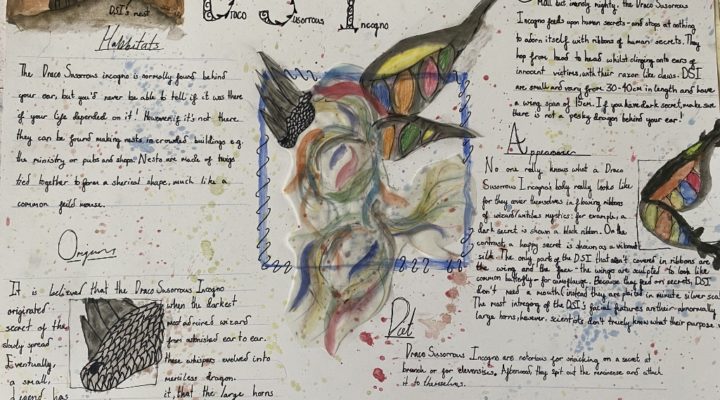 DSI's nest
Draco Susorrous Incogno
Habitats
The Draco Susorrous incogno is normally found behind
your ear, but you'd never be able to tell if it was there
if your life depended on it! However if it's not there
they can be found making nests in crowded buildings e.g.
the ministry or pubs and shops. Nests are made of twigs
tied together to form a sherical shape, much like a
common feild mouse.
Origins
It is believed that the Draco Susorrous Incogno
originated when the darkest
secret of the most admired wizard
slowly spread from astonished ear to ear.
Eventually, these whispers evolved into
a small, merciless dragon.
Legend has it, that the large horns
Small but merely nighty, the Draco Susorrous
Incogno feeds upon human secrets - and stops at nothing
to adorn itself with ribbons of human secrets. They
hop from head to head whilst clinging onto ears of
innocent victims with their razor like claws. DSI
are small and vary from 30-40cm in length and have
a wing span of 15cm. If you have dark secret, make sure
there is not a pesky dragon behind your ear!
Appearance
No one really knows what a Draco
Susorrous Incogno's body really looks like
for they cover themselves in flowing ribbons
of wizard/witches mystics: for example, a
dark secret is shown a black ribbon. On the
contrast, a happy secret is shown as a vibrant
silk. The only parts of the DSI that aren't covered in ribbons are
the wing and the face - the wings are sculpted to look like
common butterfly - for camouflage. Because they feed on secrets DSI
don't need a mouth (instead they are plated in minute silver scales
The most intregeing of the DSI's facial features are their abnormally
large horns, however scientists don't truely know what their purpose is
Diet
Draco Susorrous Incogno are notorious for snacking on a secret at
branch or for elevenses. Afterward they spit out the and attach
it to themselves.